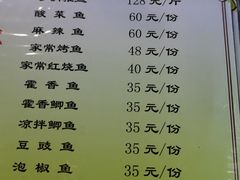 鱼 128 元/斤
酸菜鱼 60 元/份
麻辣鱼 60 元/份
家常烤鱼 48 元/份
家常红烧鱼 40 元/份
藿香鱼 35 元/份
藿香鲫鱼 35 元/份
凉拌鲫鱼 35 元/份
豆豉鱼 35 元/份
泡椒鱼 35 元/份